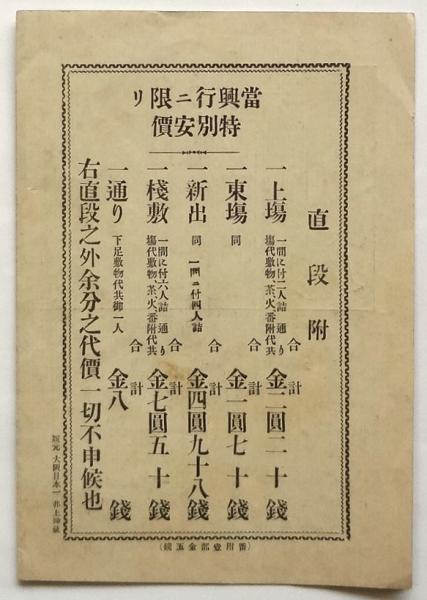 當興行ニ限リ
特別安價
直段附
一上塲 一間に付二人詰 通り塲代敷物、茶、火、番附代共 合計金二圓二十錢
一東塲 同 合計金一圓七十錢
一新出 同 一間ニ付四人詰 合計金四圓九十八錢
一棧敷 一間に付六人詰 通り塲代敷物、茶、火、番附代共 合計金七圓五十錢
一通り 下足敷物代共御一人 合計金八錢
右直段之外余分之代價一切不申候也
版元 大阪日本一 井上
(番附壹部金五錢)